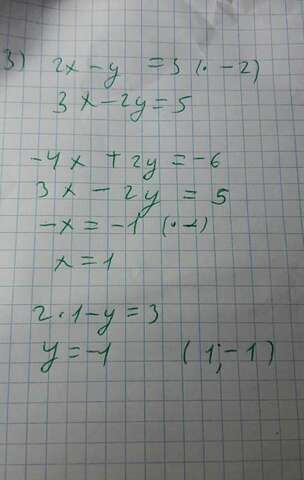 3) 2x-y = 3 (· -2)
3x-2y=5
-4x + 2y = -6
3x - 2y = 5
-x = -1 (· -1)
x = 1
2·1-y=3
y=-1 (1;-1)